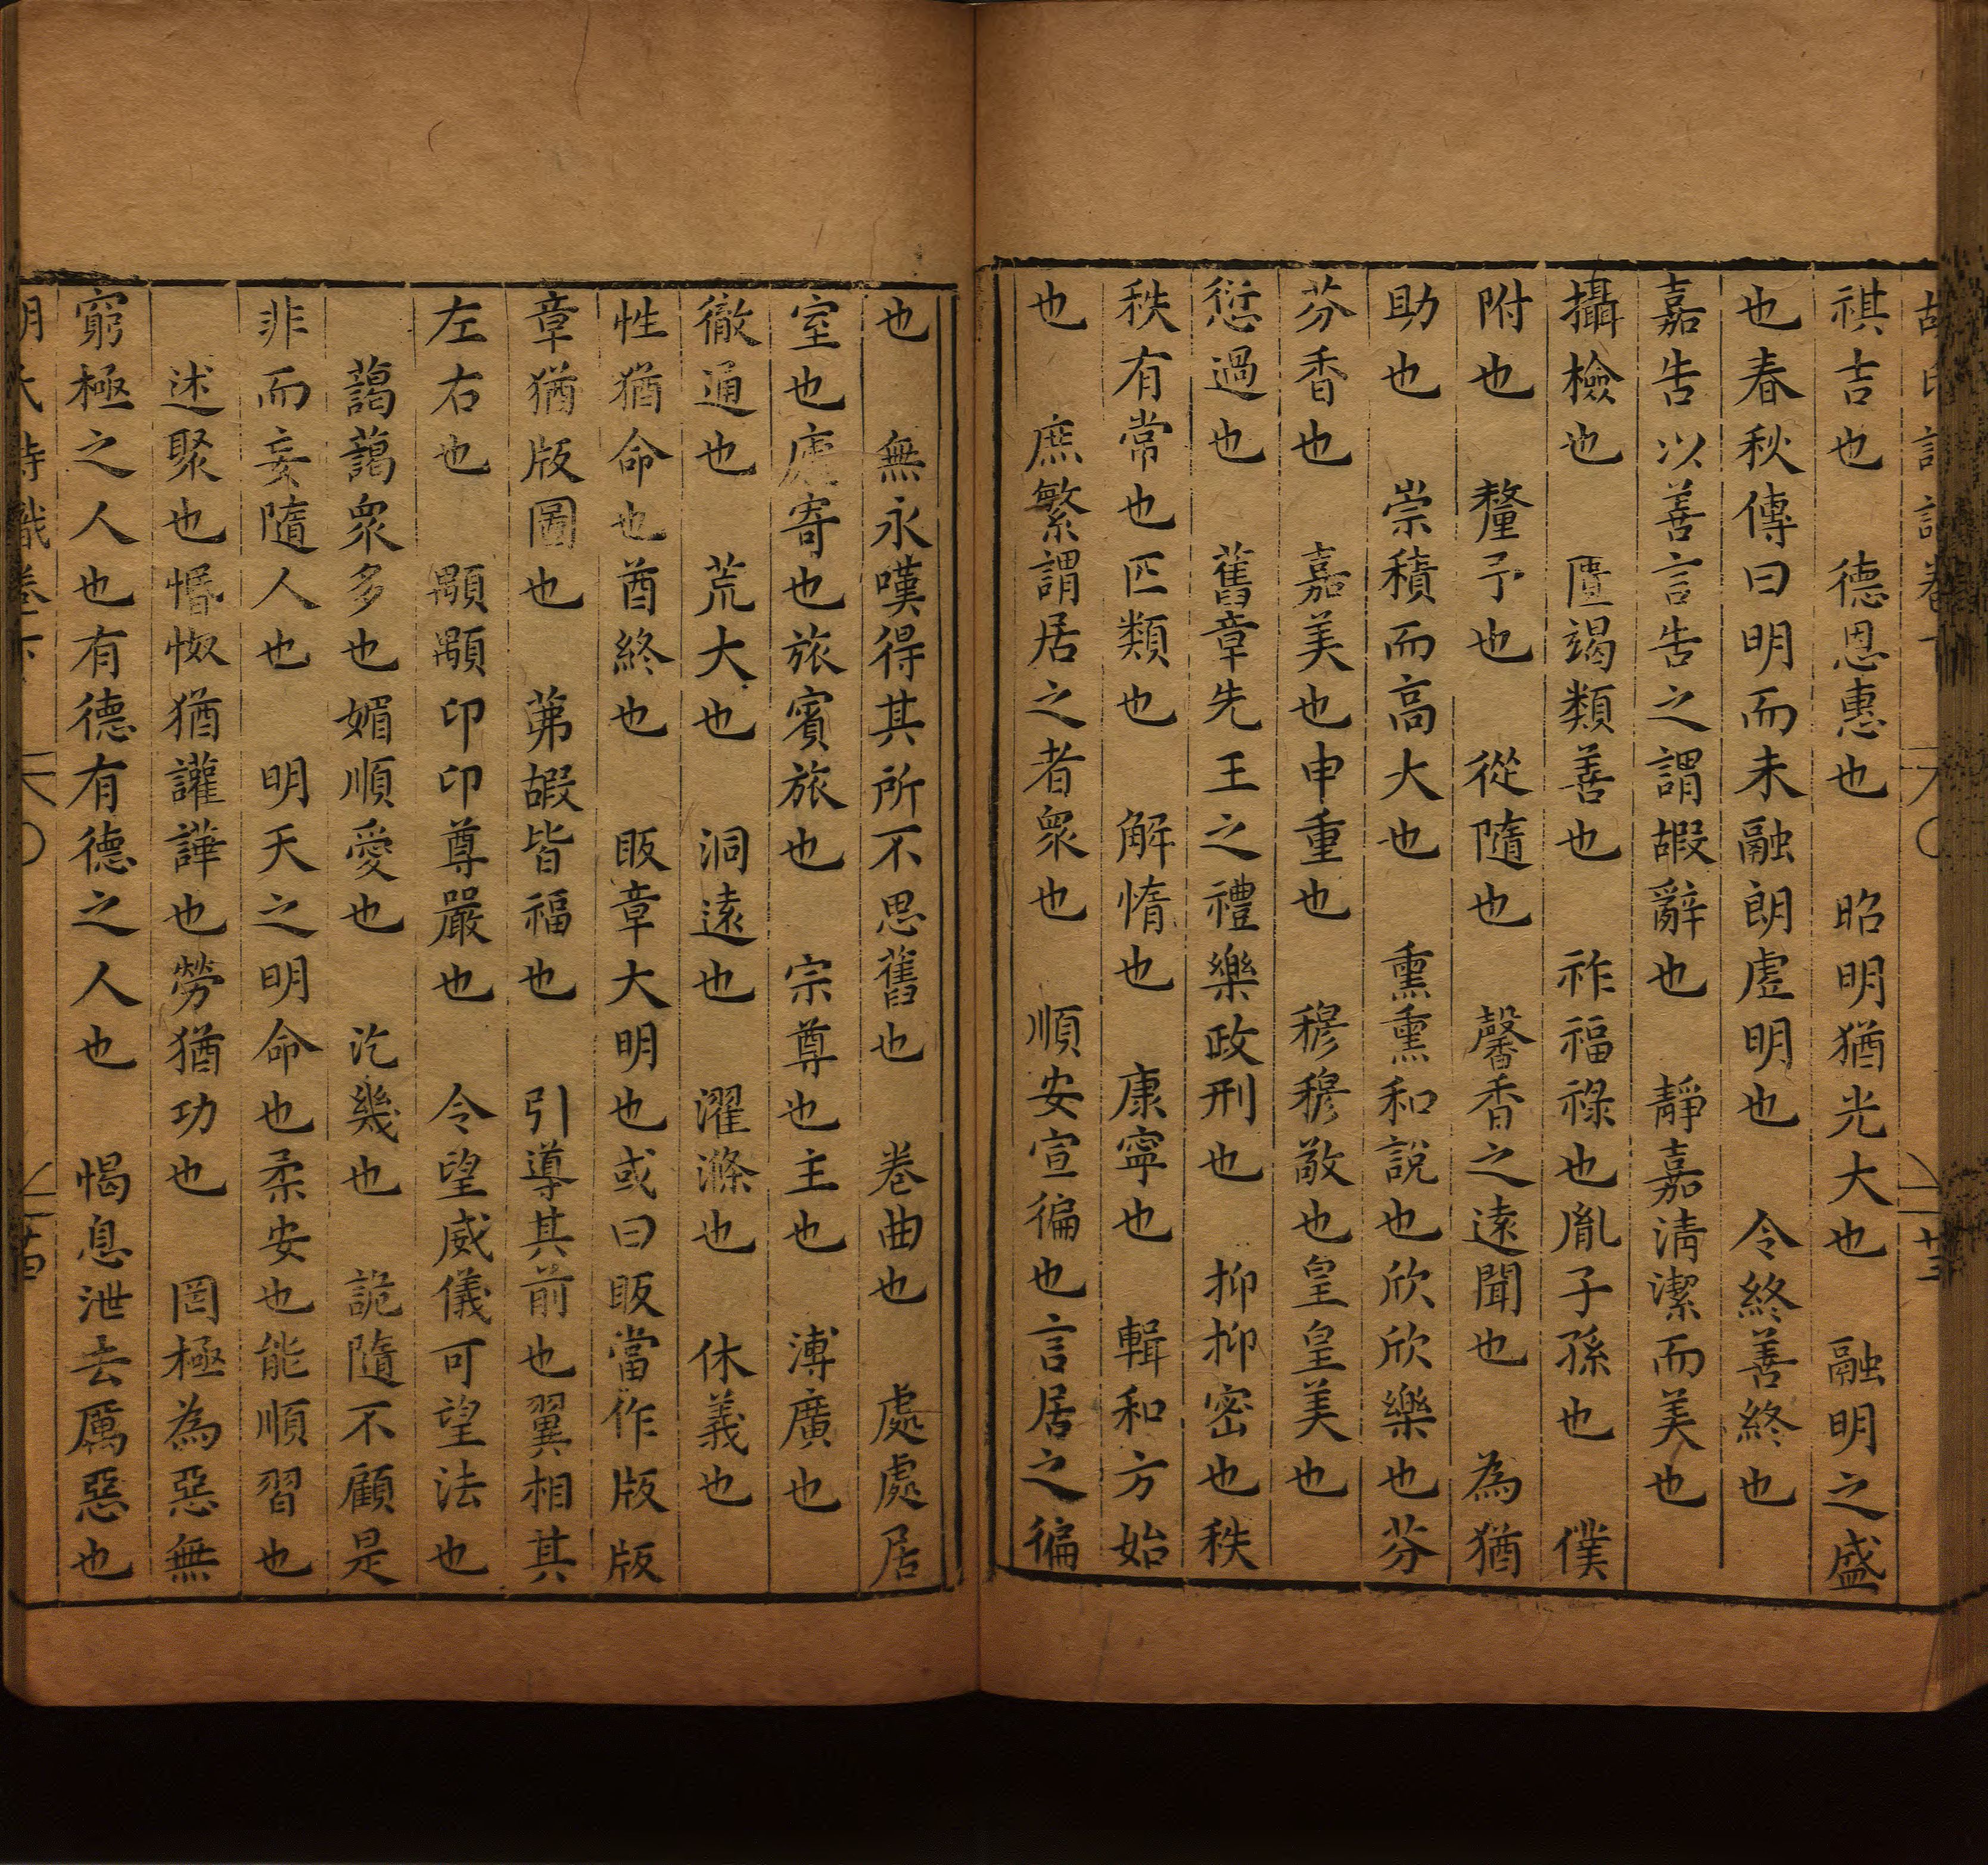 祺吉也　德恩惠也　昭明猶光大也　融明之盛
也春秋傳曰明而未融朗虛明也　令終善終也
嘉告以善言告之謂嘏辭也　靜嘉清潔而美也
攝檢也　匱竭類善也　祚福祿也胤子孫也　僕
附也　釐予也　從隨也　馨香之遠聞也　為猶
助也　崇積而高大也　熏熏和說也欣欣樂也芬
芬香也　嘉美也申重也　穆穆敬也皇皇美也
愆過也　舊章先王之禮樂政刑也　抑抑密也秩
秩有常也匹類也　解惰也　康寧也　輯和方始
也　庶繁謂居之者眾也　順安宣徧也言居之徧
也　無永嘆得其所不思舊也　卷曲也　處處居
室也廬寄也旅賓旅也　宗尊也主也　溥廣也
徹通也　荒大也　洞遠也　濯滌也　休義也
性猶命也酋終也　昄章大明也或曰昄當作版版
章猶版圖也　茀嘏皆福也　引導其前也翼相其
左右也　顒顒卬卬尊嚴也　令望威儀可望法也
藹藹眾多也媚順愛也　汔幾也　詭隨不顧是
非而妄隨人也　明天之明命也柔安也能順習也
述聚也惛怓猶讙譁也勞猶功也　罔極為惡無
窮極之人也有德有德之人也　愒息泄去厲惡也